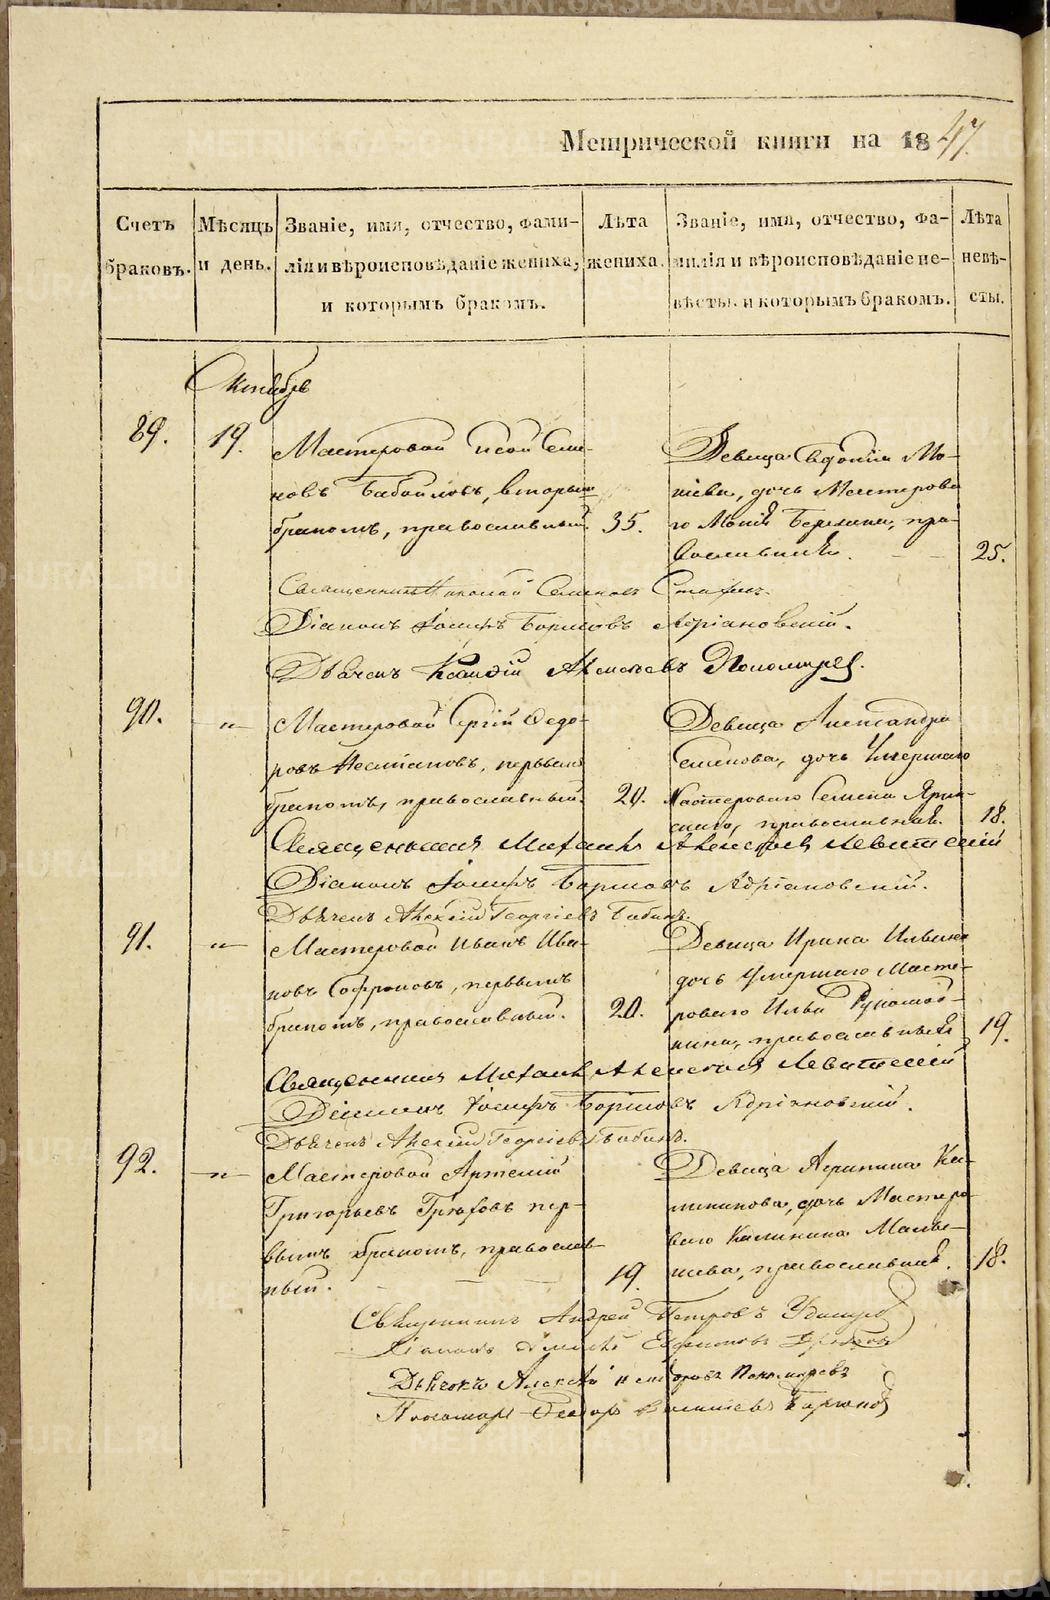 METRIKI.GASO-URAL.RU
Метрической книги на 1847.
Счетъ браковъ.
Мѣсяцъ и день.
Званіе, имя, отчество, фами-
лія и вѣроисповѣданіе жениха,
и которымъ бракомъ.
Лѣта жениха.
Званіе, имя, отчество, фа-
милія и вѣроисповѣданіе не-
вѣсты, и которымъ бракомъ.
Лѣта невѣ-
сты.
Октябрь
89.
19.
Мастеровой Псой Семе-
новъ вторымъ
бракомъ, православный.
35.
Девица Мо-
дочь Мастерова
го пра-
вославныя.
25.
Священникъ Николай Семеновъ
Діаконъ Іосифъ Борисовъ Адріановскій.
Дьячекъ Алексѣевъ Пономаревъ.
90.
"
Мастеровой Сергій Федо-
ровъ первымъ
бракомъ, православный.
20.
Девица Александра
Семенова, дочь Умершаго
Мастероваго Семена
православная.
18.
Священникъ Михаилъ Алексѣевъ Левитскій
Діаконъ Іосифъ Борисовъ Адріановскій.
Дьячекъ Алексій Георгіевъ Бабинъ.
91.
"
Мастеровой Иванъ Ива-
новъ Софроновъ, первымъ
бракомъ, православный.
20.
Девица Ирина Ильина
дочь Умершаго Масте-
роваго Ильи Рукомой-
кина, православныя
19.
Священникъ Михаилъ Алексѣевъ Левитскій
Діаконъ Іосифъ Борисовъ Адріановскій.
Дьячекъ Алексій Георгіевъ Бабинъ.
92.
"
Мастеровой Артемій
Григорьевъ пер-
вымъ бракомъ, православ-
ный.
19.
Девица Агрипина Ка-
линикова, дочь Мастеро-
ваго Калиника Малы-
шева, православная.
18.
Священникъ Андрей Петровъ Удинцовъ
Діаконъ Ефимовъ
Дьячокъ Алексѣй Пономаревъ
Пономарь Федоръ